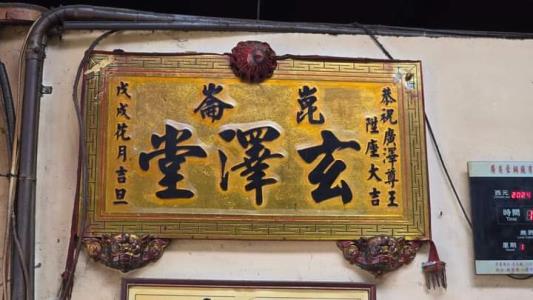 恭祝廣澤尊王
陞座大吉
崑崙
玄澤堂
戊戌花月吉旦
西元 2024
時間
Time
星期 1